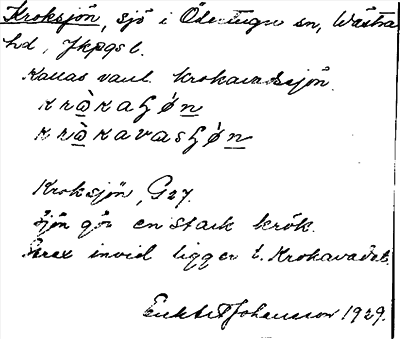 Kroksjön, sjö i Ödestugu sn, Västra
hd, Jkpgs l.
Kallas vanl. Krokavadssjön.
kròkaʃǿn
kròkavasʃǿn
Kroksjön, G27.
Sjön gör en stark krök.
invid ligger t. Krokavadet.
Johansson 1929.